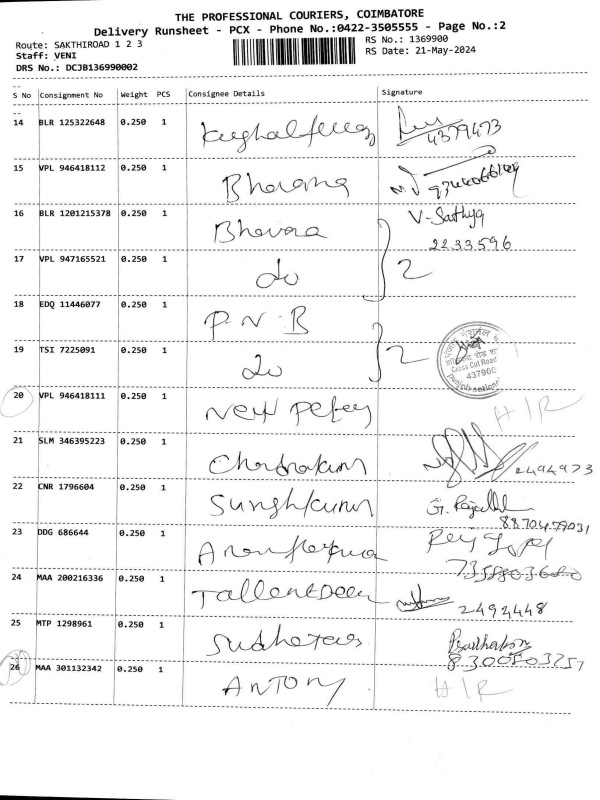 THE PROFESSIONAL COURIERS, COIMBATORE
Delivery Runsheet - PCX - Phone No.:0422-3505555 - Page No.:2
Route: SAKTHIROAD 1 2 3
RS No.: 1369900
Staff: VENI
RS Date: 21-May-2024
DRS No.: DCJB136990002
S No Consignment No Weight PCS Consignee Details Signature
14 BLR 125322648 0.250 1
4379473
15 VPL 946418112 0.250 1 Bhavana
16 BLR 1201215378 0.250 1 Bhavana V-Sathya
2233596
17 VPL 947165521 0.250 1 do 2
18 EDQ 11446077 0.250 1 P.N.B
19 TSI 7225091 0.250 1 do 2
Cross Cut Road
437900
20 VPL 946418111 0.250 1 New H/R
21 SLM 346395223 0.250 1 2494973
22 CNR 1796604 0.250 1 G.
8870479031
23 DDG 686644 0.250 1
7358803680
24 MAA 200216336 0.250 1
2494448
25 MTP 1298961 0.250 1
8300803257
26 MAA 301132342 0.250 1 ANTONY H/R